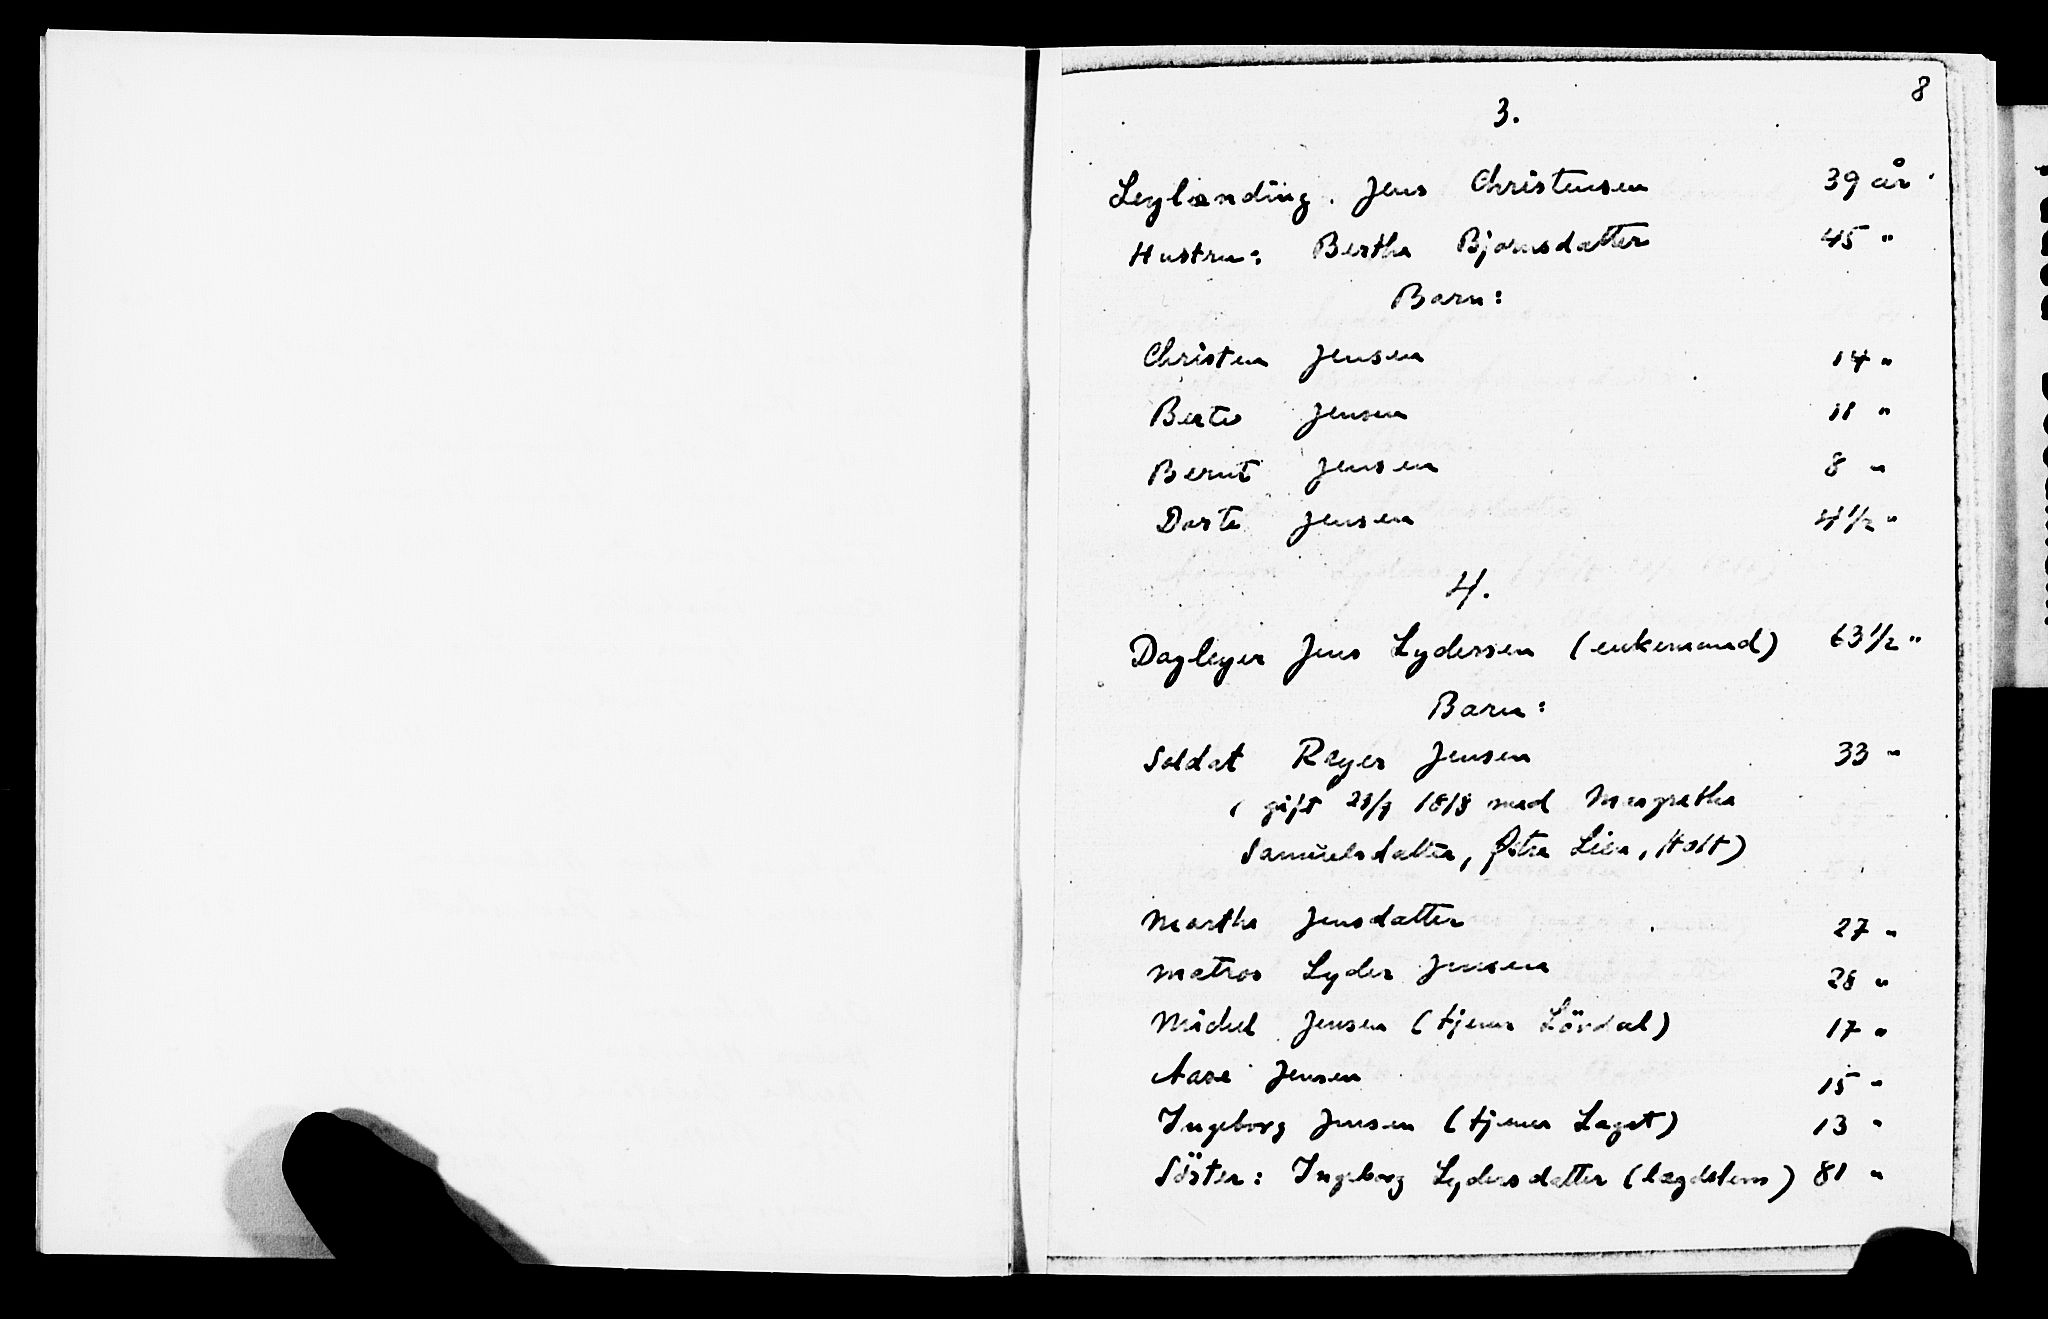 8
3.
Leylænding. Jens Christensen 39 år
Hustru: Bertha Bjørnsdatter 45 "
Barn:
Christen Jensen 14 "
Berte Jensen 11 "
Bernt Jensen 8 "
Dorte Jensen 4 1/2 "
4.
Dagleyer Jens Lydersen (enkemand) 63 1/2 "
Barn:
Soldat Reyer Jensen 33 "
( gift 1818 med Margretha
Samuelsdatter, Østre Lien, Holt)
Martha Jensdatter 27 "
Matros Lyder Jensen 28 "
Michel Jensen (tjener Lövdal) 17 "
Aase Jensen 15 "
Ingeborg Jensen (tjener Laget) 13 "
Söster: Ingeborg Lydersdatter (lægdslem) 81 "